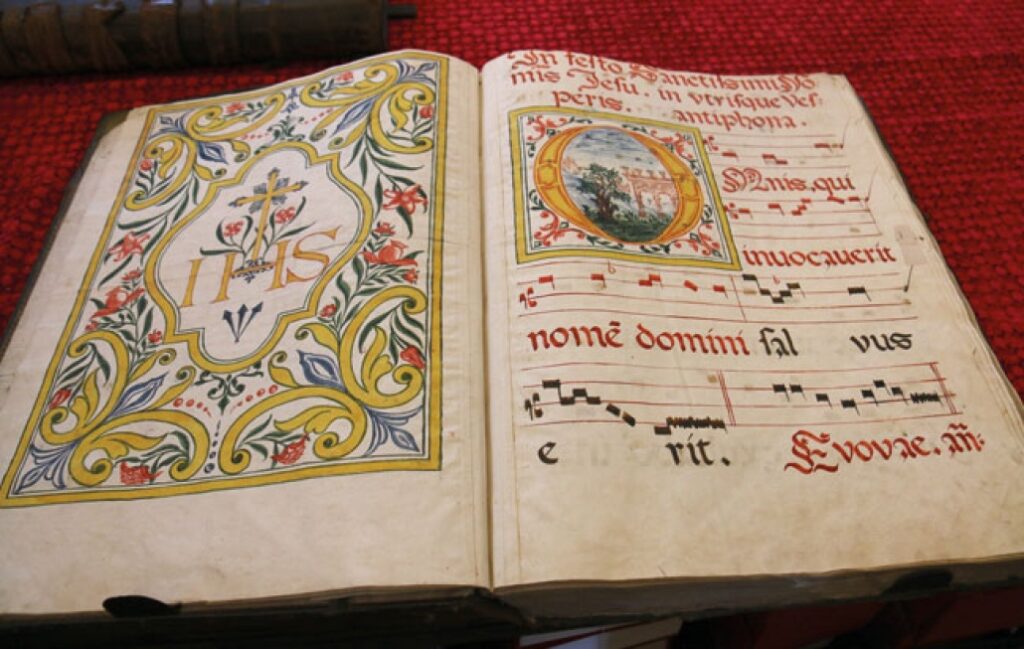 IHS
In festo Sanctissimi No
mis Jesu. in vtrisque Ves
peris.
antiphona.
OMnis, qui
inuocauerit
nomē domini sal vus
e rit. Evovae. añ: